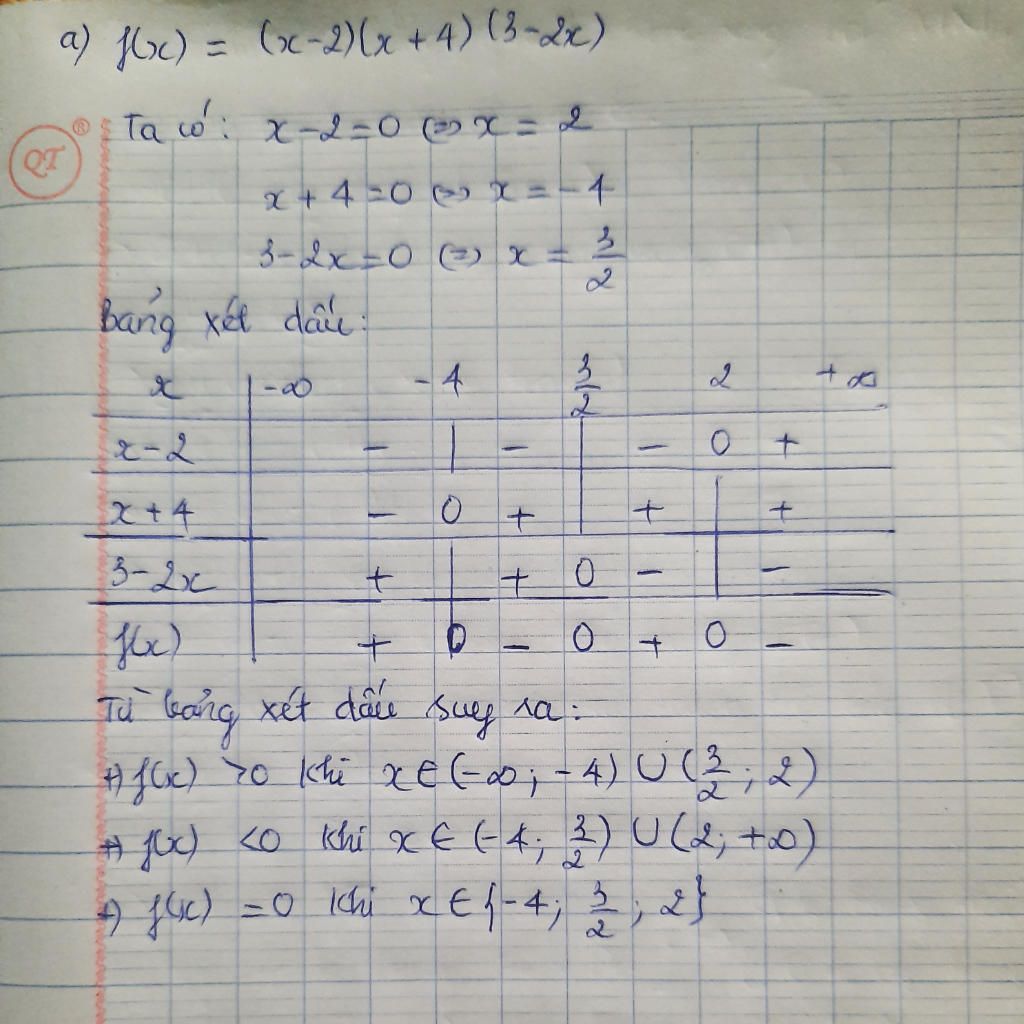 a) f(x) = (x-2)(x+4)(3-2x)
QT ®
Ta có: x-2=0 (=) x = 2
x+4=0 (=) x = -4
3-2x=0 (=) x = 3/2
bảng xét dấu:
x | -∞ -4 3/2 2 +∞
x-2 | - | - | - 0 +
x+4 | - 0 + | + | +
3-2x | + | + 0 - | -
f(x) | + 0 - 0 + 0 -
Từ bảng xét dấu suy ra:
+) f(x) >0 khi x∈(-∞; -4) ∪ (3/2; 2)
+) f(x) <0 khi x∈(-4; 3/2) ∪ (2; +∞)
+) f(x) =0 khi x∈{-4; 3/2; 2}